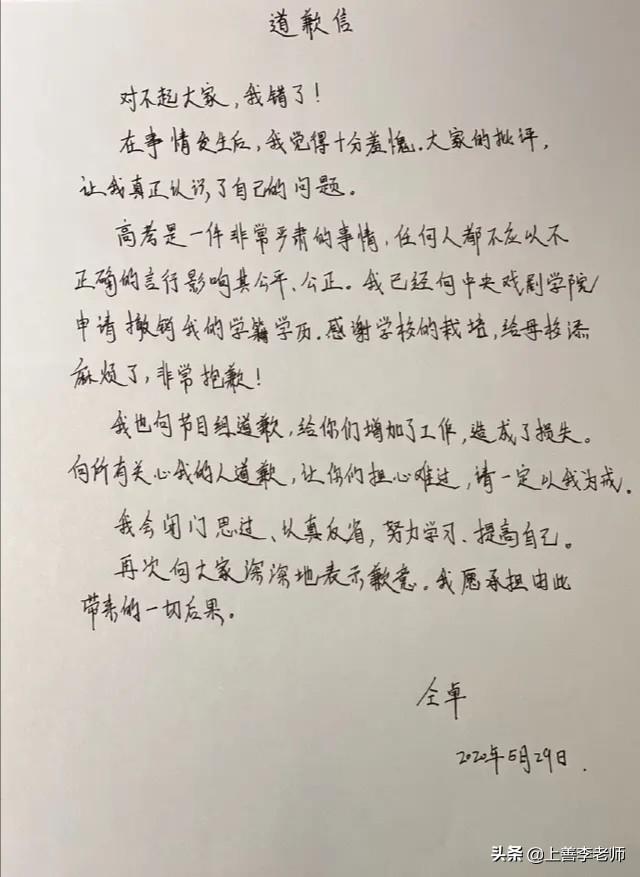 道歉信
对不起大家，我错了！
在事情发生后，我觉得十分羞愧。大家的批评，
让我真正认识了自己的问题。
高考是一件非常严肃的事情，任何人都不应以不
正确的言行影响其公平、公正。我已经向中央戏剧学院
申请撤销我的学籍学历。感谢学校的栽培，给母校添
麻烦了，非常抱歉！
我也向节目组道歉，给你们增加了工作，造成了损失。
向所有关心我的人道歉，让你们担心难过，请一定以我为戒。
我会闭门思过、认真反省，努力学习、提高自己。
再次向大家深深地表示歉意。我愿承担由此
带来的一切后果。
仝卓
2020年5月29日.
头条 @上善李老师